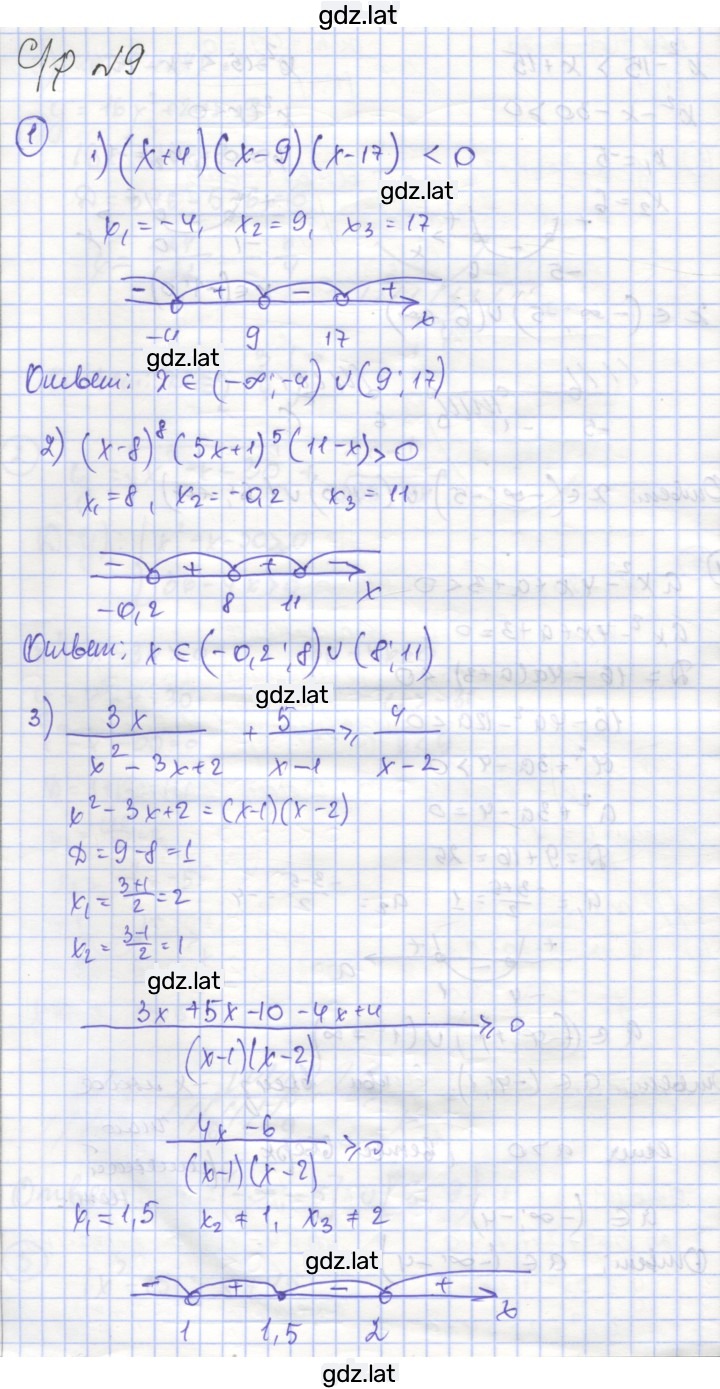 gdz.lat
С/р №9
① 1) (x+4)(x-9)(x-17) < 0
gdz.lat
x₁ = -4, x₂ = 9, x₃ = 17
- + - +
x
-4 9 17
gdz.lat
Ответ: x ∈ (-∞; -4) ∪ (9; 17)
2) (x-8)⁸ (5x+1)⁵ (11-x) > 0
x₁ = 8, x₂ = -0,2 x₃ = 11
- + + -
x
-0,2 8 11
Ответ: x ∈ (-0,2; 8) ∪ (8; 11)
gdz.lat
3) 3x/(x² - 3x + 2) + 5/(x-1) ≥ 4/(x-2)
x² - 3x + 2 = (x-1)(x-2)
D = 9-8 = 1
x₁ = (3+1)/2 = 2
x₂ = (3-1)/2 = 1
gdz.lat
(3x + 5x - 10 - 4x + 4)/((x-1)(x-2)) ≥ 0
(4x - 6)/((x-1)(x-2)) ≥ 0
x₁ = 1,5 x₂ ≠ 1, x₃ ≠ 2
gdz.lat
- + - +
x
1 1,5 2
gdz.lat